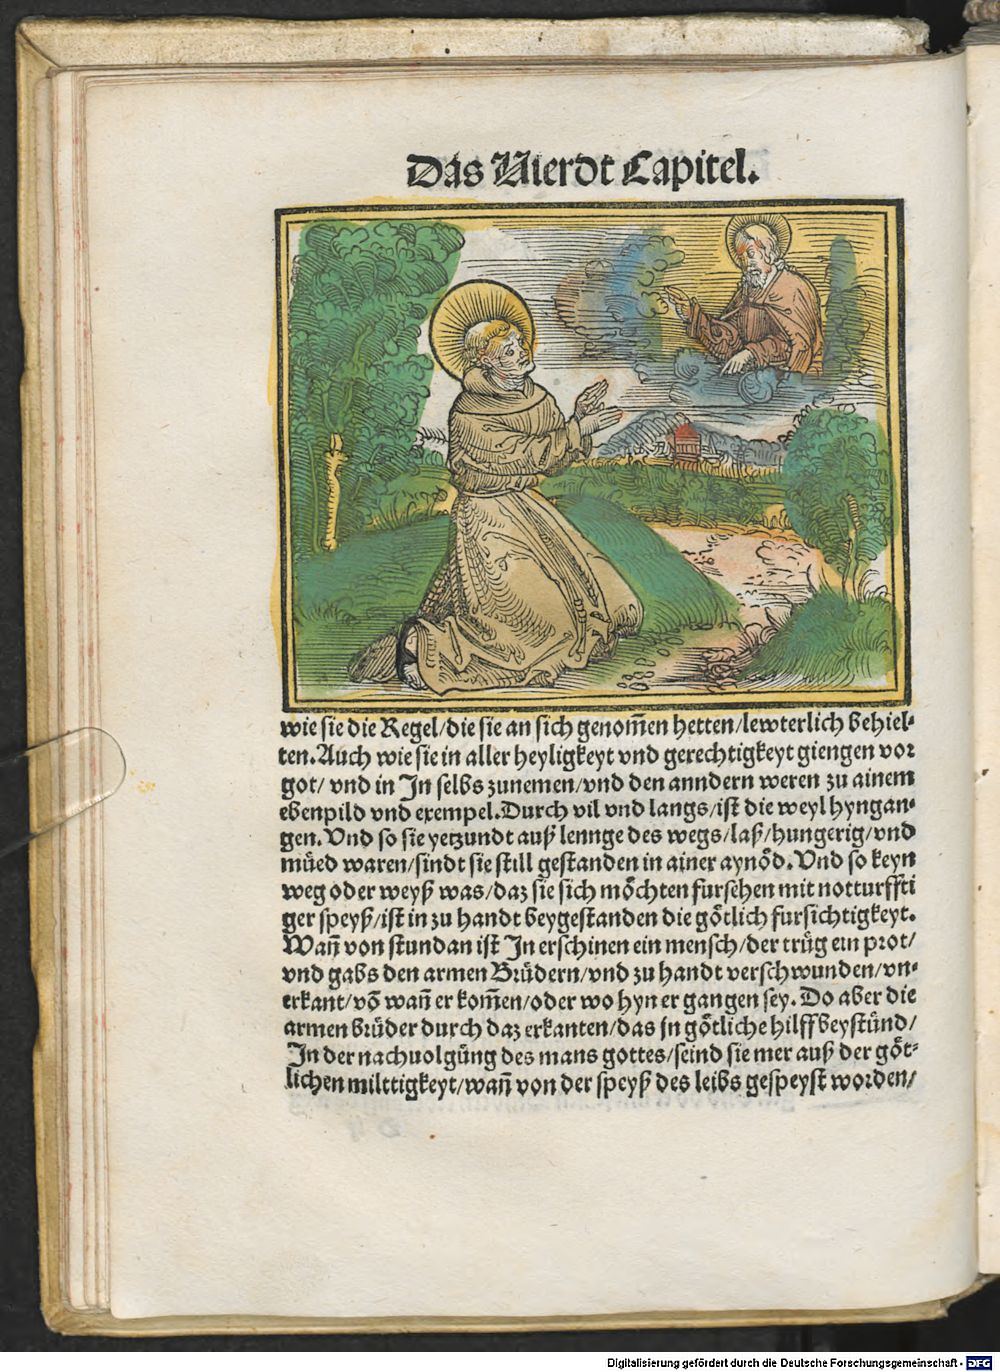 Das Vierdt Capitel.
wie sie die Regel/die sie an sich genom̄en hetten/lewterlich behiel⸗
ten. Auch wie sie in aller heyligkeyt vnd gerechtigkeyt giengen vor
got/ vnd in In selbs zunemen/vnd den anndern weren zu ainem
ebenpild vnd exempel. Durch vil vnd langs/ist die weyl hyngan⸗
gen. Vnd so sie yetzundt auß lennge des wegs/laß/hungerig/vnd
müed waren/sindt sie still gestanden in ainer aynöd. Vnd so keyn
weg oder weyß was/daz sie sich möchten fursehen mit notturffti
ger speyß/ist in zu handt beygestanden die götlich fursichtigkeyt.
Wan̄ von stundan ist In erschinen ein mensch/der trůg ein prot/
vnd gabs den armen Brüdern/vnd zu handt verschwunden/vn⸗
erkant/vō wan̄ er kom̄en/oder wo hyn er gangen sey. Do aber die
armen brüder durch daz erkanten/das jn götliche hilff beystůnd/
In der nachuolgůng des mans gottes/seind sie mer auß der göt⸗
lichen milttigkeyt/wan̄ von der speyß des leibs gespeyst worden/
Digitalisierung gefördert durch die Deutsche Forschungsgemeinschaft - DFG